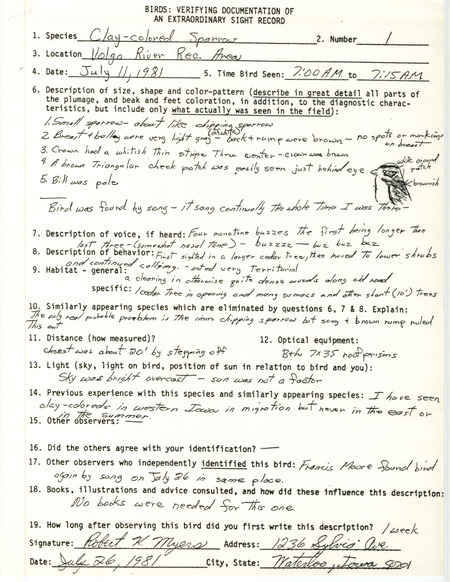 BIRDS: VERIFYING DOCUMENTATION OF
AN EXTRAORDINARY SIGHT RECORD
1. Species Clay-colored Sparrow 2. Number 1
3. Location Volga River Rec. Area
4. Date: July 11, 1981 5. Time Bird Seen: 7:00 AM to 7:15 AM
6. Description of size, shape and color-pattern (describe in great detail all parts of
the plumage, and beak and feet coloration, in addition, to the diagnostic charac-
teristics, but include only what actually was seen in the field):
1. Small sparrow - about like chipping sparrow
2. Breast + belly were very light gray - back + rump were brown - no spots or markings
on breast
3. Crown had a whitish thin stripe thru center - crown was brown
4. A brown triangular cheek patch was easily seen just behind eye
white around
patch
brownish
5. Bill was pale
Bird was found by song - it sang continually the whole time I was there -
7. Description of voice, if heard: Four monotone buzzes the first being longer than
last three - (somewhat nasal tone) - buzzzz - buz buz buz
8. Description of behavior: First sighted in a larger cedar tree, then moved to lower shrubs
and continued calling. - acted very territorial
9. Habitat - general: a clearing in otherwise quite dense woods along old road
specific: cedar tree in opening and many sumacs and other short (10') trees
10. Similarly appearing species which are eliminated by questions 6, 7 & 8. Explain:
The only real probable problem is the imm chipping sparrow but song + brown rump ruled
this out
11. Distance (how measured)? 12. Optical equipment:
closest was about 20' by stepping off B+L 7x35 roof prisms
13. Light (sky, light on bird, position of sun in relation to bird and you):
Sky was bright overcast - sun was not a factor
14. Previous experience with this species and similarly appearing species: I have seen
clay-coloreds in western Iowa in migration but never in the east or
in the summer.
15. Other observers: —
16. Did the others agree with your identification? —
17. Other observers who independently identified this bird: Francis Moore found bird
again by song on July 26 in same place.
18. Books, illustrations and advice consulted, and how did these influence this description:
No books were needed for this one
19. How long after observing this bird did you first write this description? 1 week
Signature: Robert K Myers Address: 1236 Sylvia Ave.
Date: July 26, 1981 City, State: Waterloo, Iowa